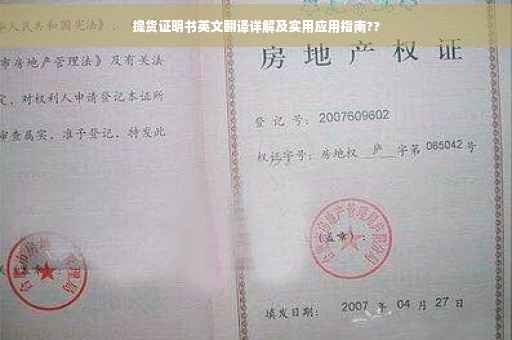 提货证明书英文翻译详解及实用应用指南??
人民共和国宪法》、
市房地产管理法》及有关法
定，对权利人申请登记本证所
审查属实，准予登记，特发此
房地产权证
登记号：2007609602
权证字号：房地权 庐 字第 085042 号
（盖章）：
填发日期： 2007 年 04 月 27 日